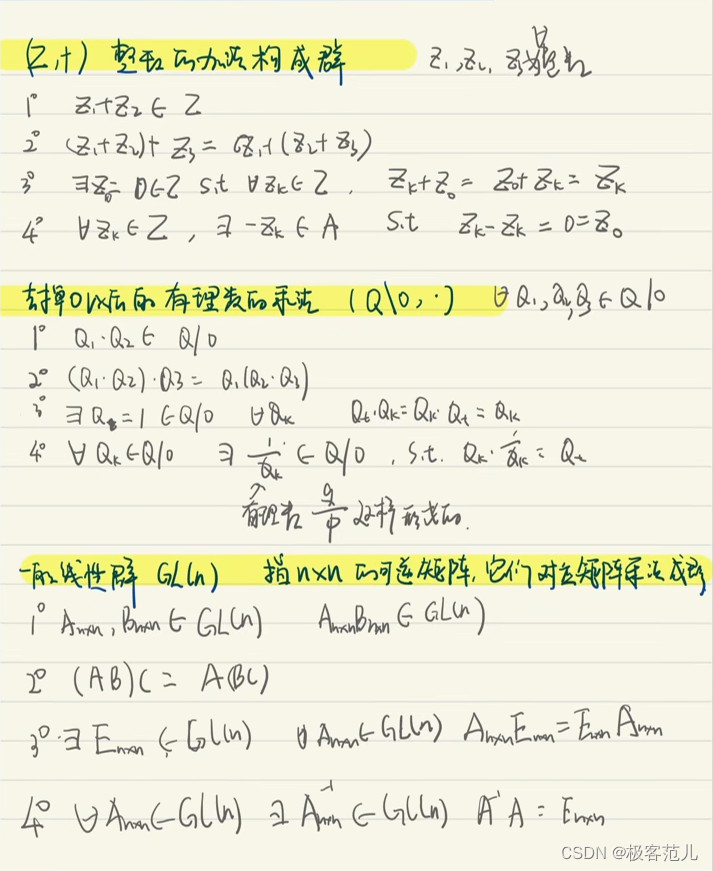 (Z,+) 整数的加法构成群 Z₁,Z₂,Z₃
1° Z₁+Z₂ ∈ Z
2° (Z₁+Z₂)+Z₃ = Z₁+(Z₂+Z₃)
3° ∃Z₀=0∈Z s.t ∀Zₖ∈Z, Zₖ+Z₀ = Z₀+Zₖ = Zₖ
4° ∀Zₖ∈Z, ∃-Zₖ∈A S.t Zₖ-Zₖ=0=Z₀
去掉0以后的有理数的乘法 (Q\0,·) ∀Q₁,Q₂,Q₃∈Q\0
1° Q₁·Q₂∈ Q/0
2° (Q₁·Q₂)·Q3 = Q₁(Q₂·Q₃)
3° ∃Qₜ=1∈Q/0 ∀Qₖ Qₜ·Qₖ=Qₖ·Qₜ=Qₖ
4° ∀Qₖ∈Q/0 ∃ 1/Qₖ ∈ Q/0, s.t. Qₖ·1/Qₖ = Qₜ
有理数 q/p 这样形式的.
一般线性群 GL(n) 指n×n的可逆矩阵,它们对应矩阵乘法成群
1° Aₙₓₙ, Bₙₓₙ ∈ GL(n) AₙₓₙBₙₓₙ ∈ GL(n)
2° (AB)C = A(BC)
3°·∃ Eₙₓₙ ∈ GL(n) ∀Aₙₓₙ∈GL(n) AₙₓₙEₙₓₙ=EₙₓₙAₙₓₙ
4° ∀Aₙₓₙ∈GL(n) ∃Aₙₓₙ⁻¹∈GL(n) A⁻¹A = Eₙₓₙ
CSDN @极客范儿